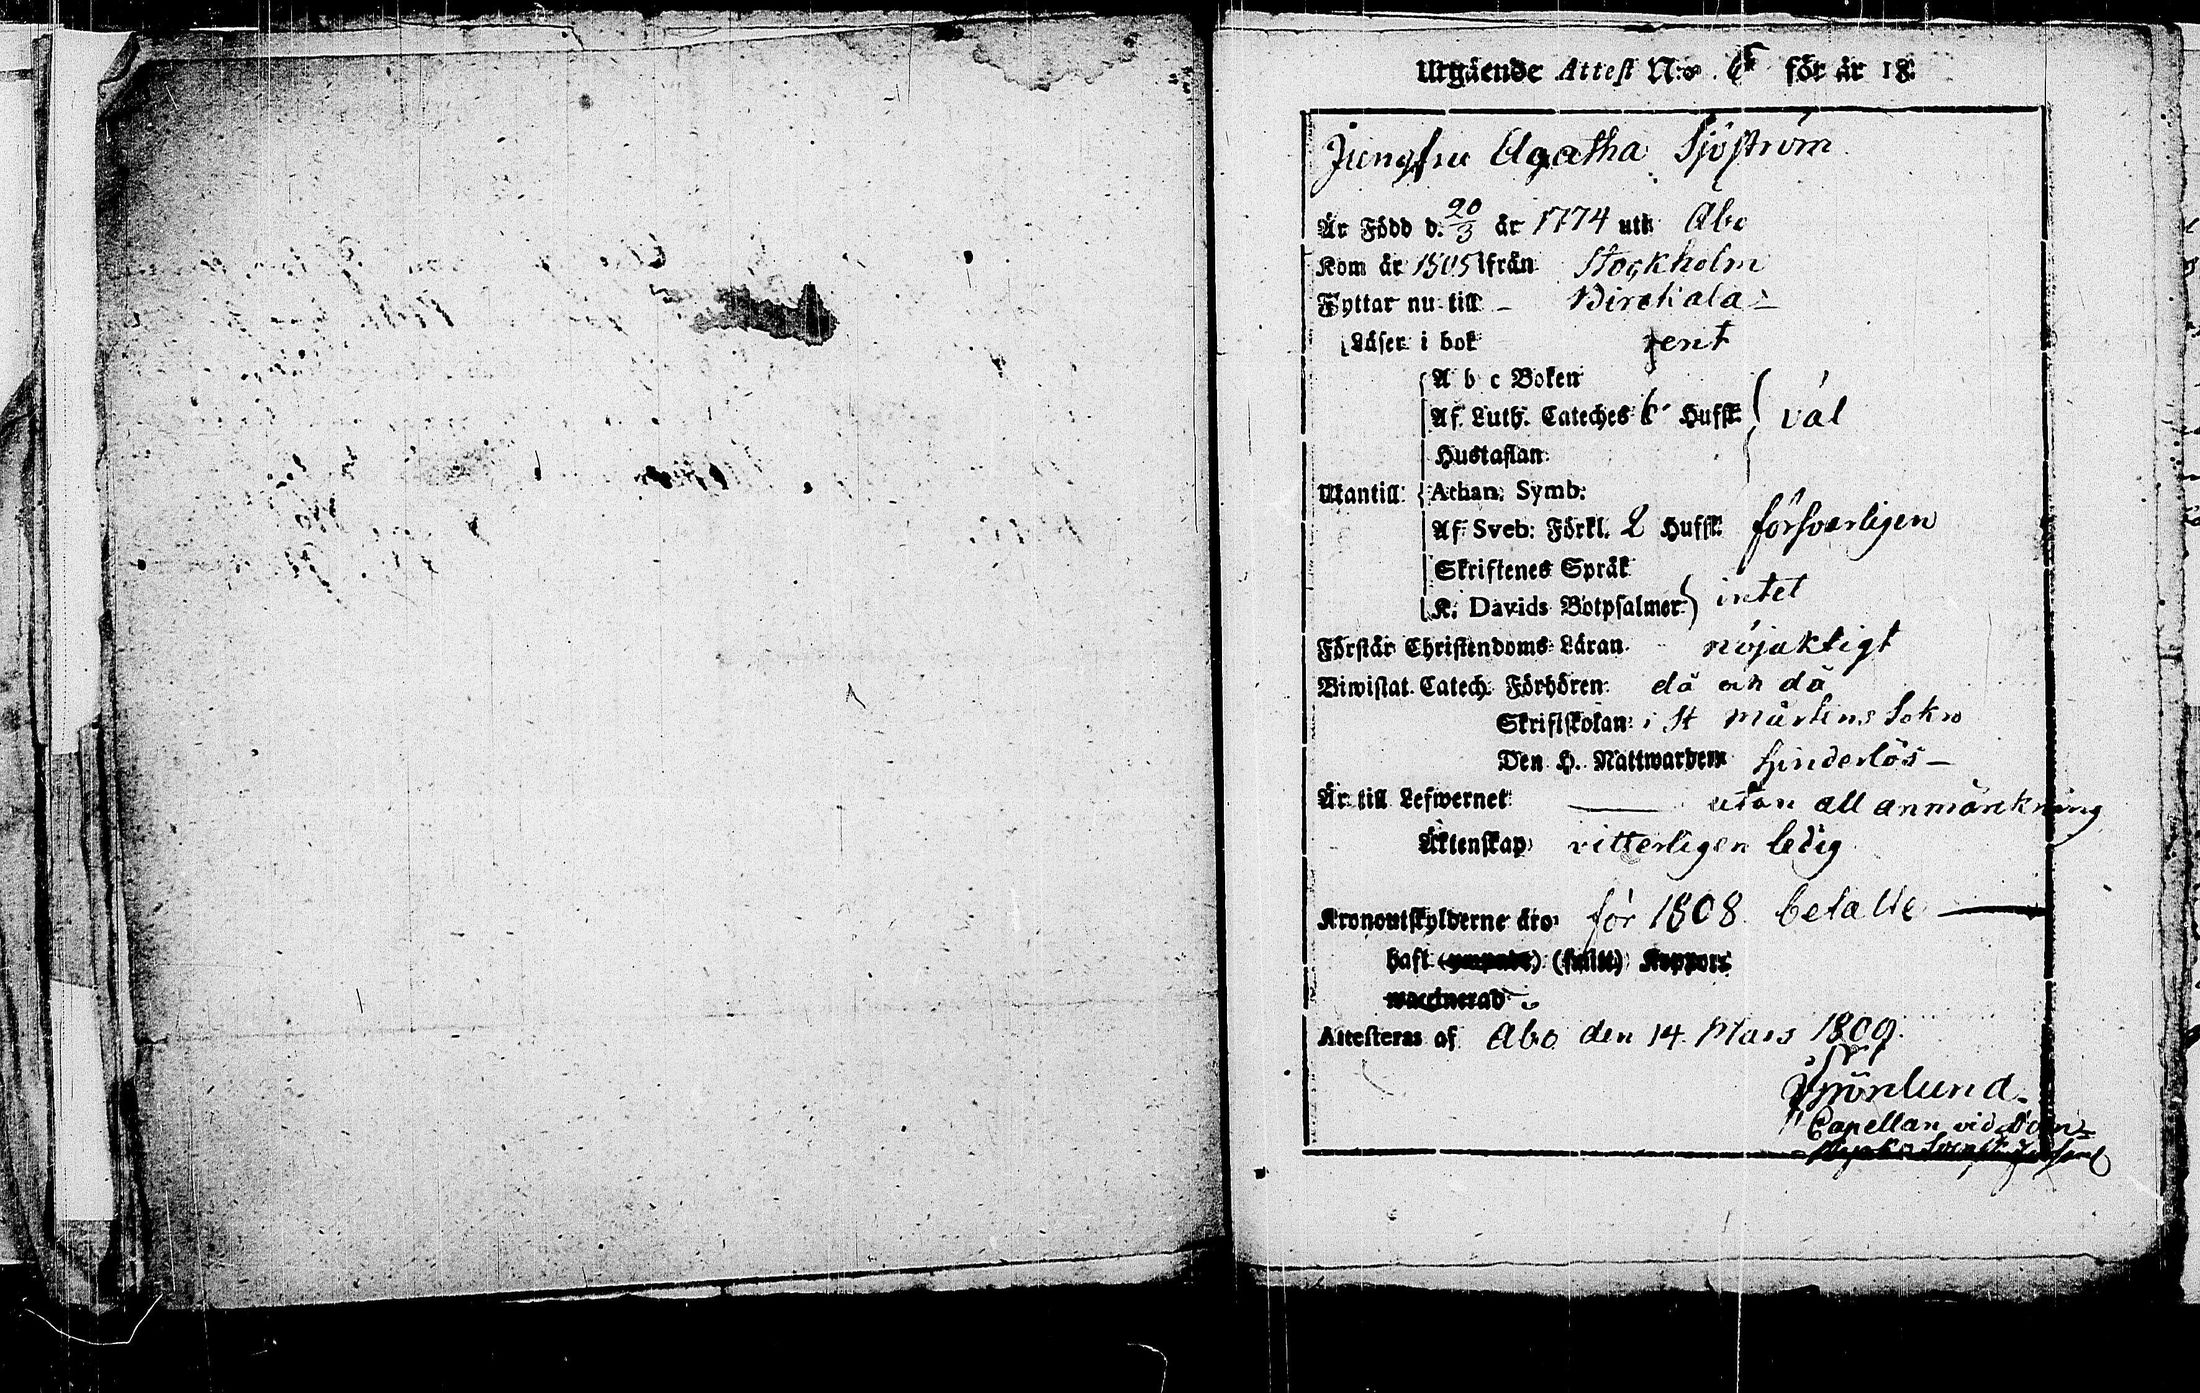 Utgående Attest N:o 6 för år 18
Jungfru Agatha Sjöström
Är Född d. 20/3 år 1774 uti Abo
Kom år 1805 ifrån Stockholm
Flyttar nu till Birckala
Läser i bok rent
A b c Boken
Af. Luth. Cateches 6 Hufst. väl
Hustaflan
Utantill Athan. Symb.
Af Sveb. Förkl. 2 Hufst. försvarligen
Skriftenes Språk
K. Davids Botpsalmer intet
Förstår Christendoms Läran nöjaktigt
Biwistat Catech. Förhören då och då
Skriftskolan i St Mårtens Sokn
Den H. Nattwarden hinderlös
Är till Lefwernet utan all anmärckning
Äktenskap vitterligen ledig
Kronoutskylderne äro för 1808 betalte
haft (ympade) (sjelf) Koppor
waccinerad
Attesteras af Abo den 14 Mars 1809
Grönlund
Capellan vid Dom-
Kyrko Svenska